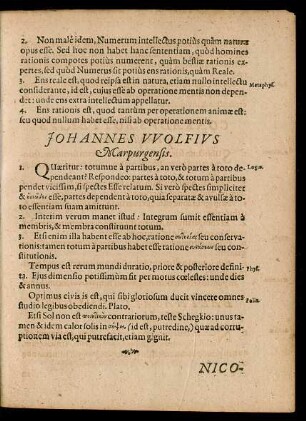 2. Non malè idem, Numerum intellectus potiùs quàm naturæ
opus esse. Sed hoc non habet hanc sententiam, quòd homines
rationis compotes potiùs numerent, quàm bestiæ rationis ex-
pertes, sed quòd Numerus sit potiùs ens rationis, quàm Reale.
3. Ens reale est, quod reipsa est in natura, etiam nullo intellectu Metaphys.
considerante, id est, cujus esse ab operatione mentis non depen-
det: unde ens extra intellectum appellatur.
4. Ens rationis est, quod tantùm per operationem animæ est:
seu quod nullum habet esse, nisi ab operatione mentis.
JOHANNES VVOLFIVS
Marpurgensis.
1. QUæritur: totumne à partibus, an verò partes à toto de- Logicæ
pendeant? Respondeo: partes à toto, & totum à partibus
pendet vicissim, si spectes Esse relatum. Si verò spectes simpliciter
& esse, partes dependent à toto, quia separatæ & avulsæ à to-
to essentiam suam amittunt.
2. Interim verum manet istud: Integrum sumit essentiam à
membris, & membra constituunt totum.
3. Etsi enim illa habent esse ab hoc, ratione seu conserva-
tionis: tamen totum à partibus habet esse ratione seu con-
stitutionis.
Tempus est rerum mundi duratio, priore & posteriore defini- Phys.
ta. Ejus dimensio potissimùm sit per motus cœlestes: unde dies
& annus.
Optimus civis is est, qui sibi gloriosum ducit vincere omnes Polit.
studio legibus obediendi. Plato.
Etsi Sol non est contrariorum, teste Schegkio: unus ta-
men & idem calor solis in (id est, putredine,) quæ ad corru-
ptionem via est, qui putrefacit, etiam gignit.
NICO-